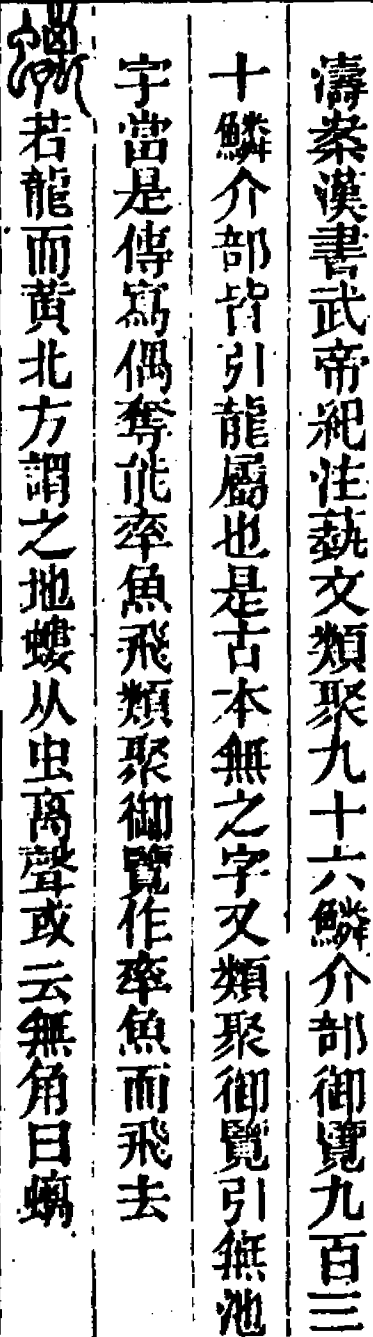 濤案漢書武帝紀注藝文類聚九十六鱗介部御覽九百三
十鱗介部皆引龍屬也是古本無之字又類聚御覽引無池
字當是傳寫偶奪能率魚飛類聚御覽作率魚而飛去
螭若龍而黃北方謂之地螻从虫离聲或云無角曰螭